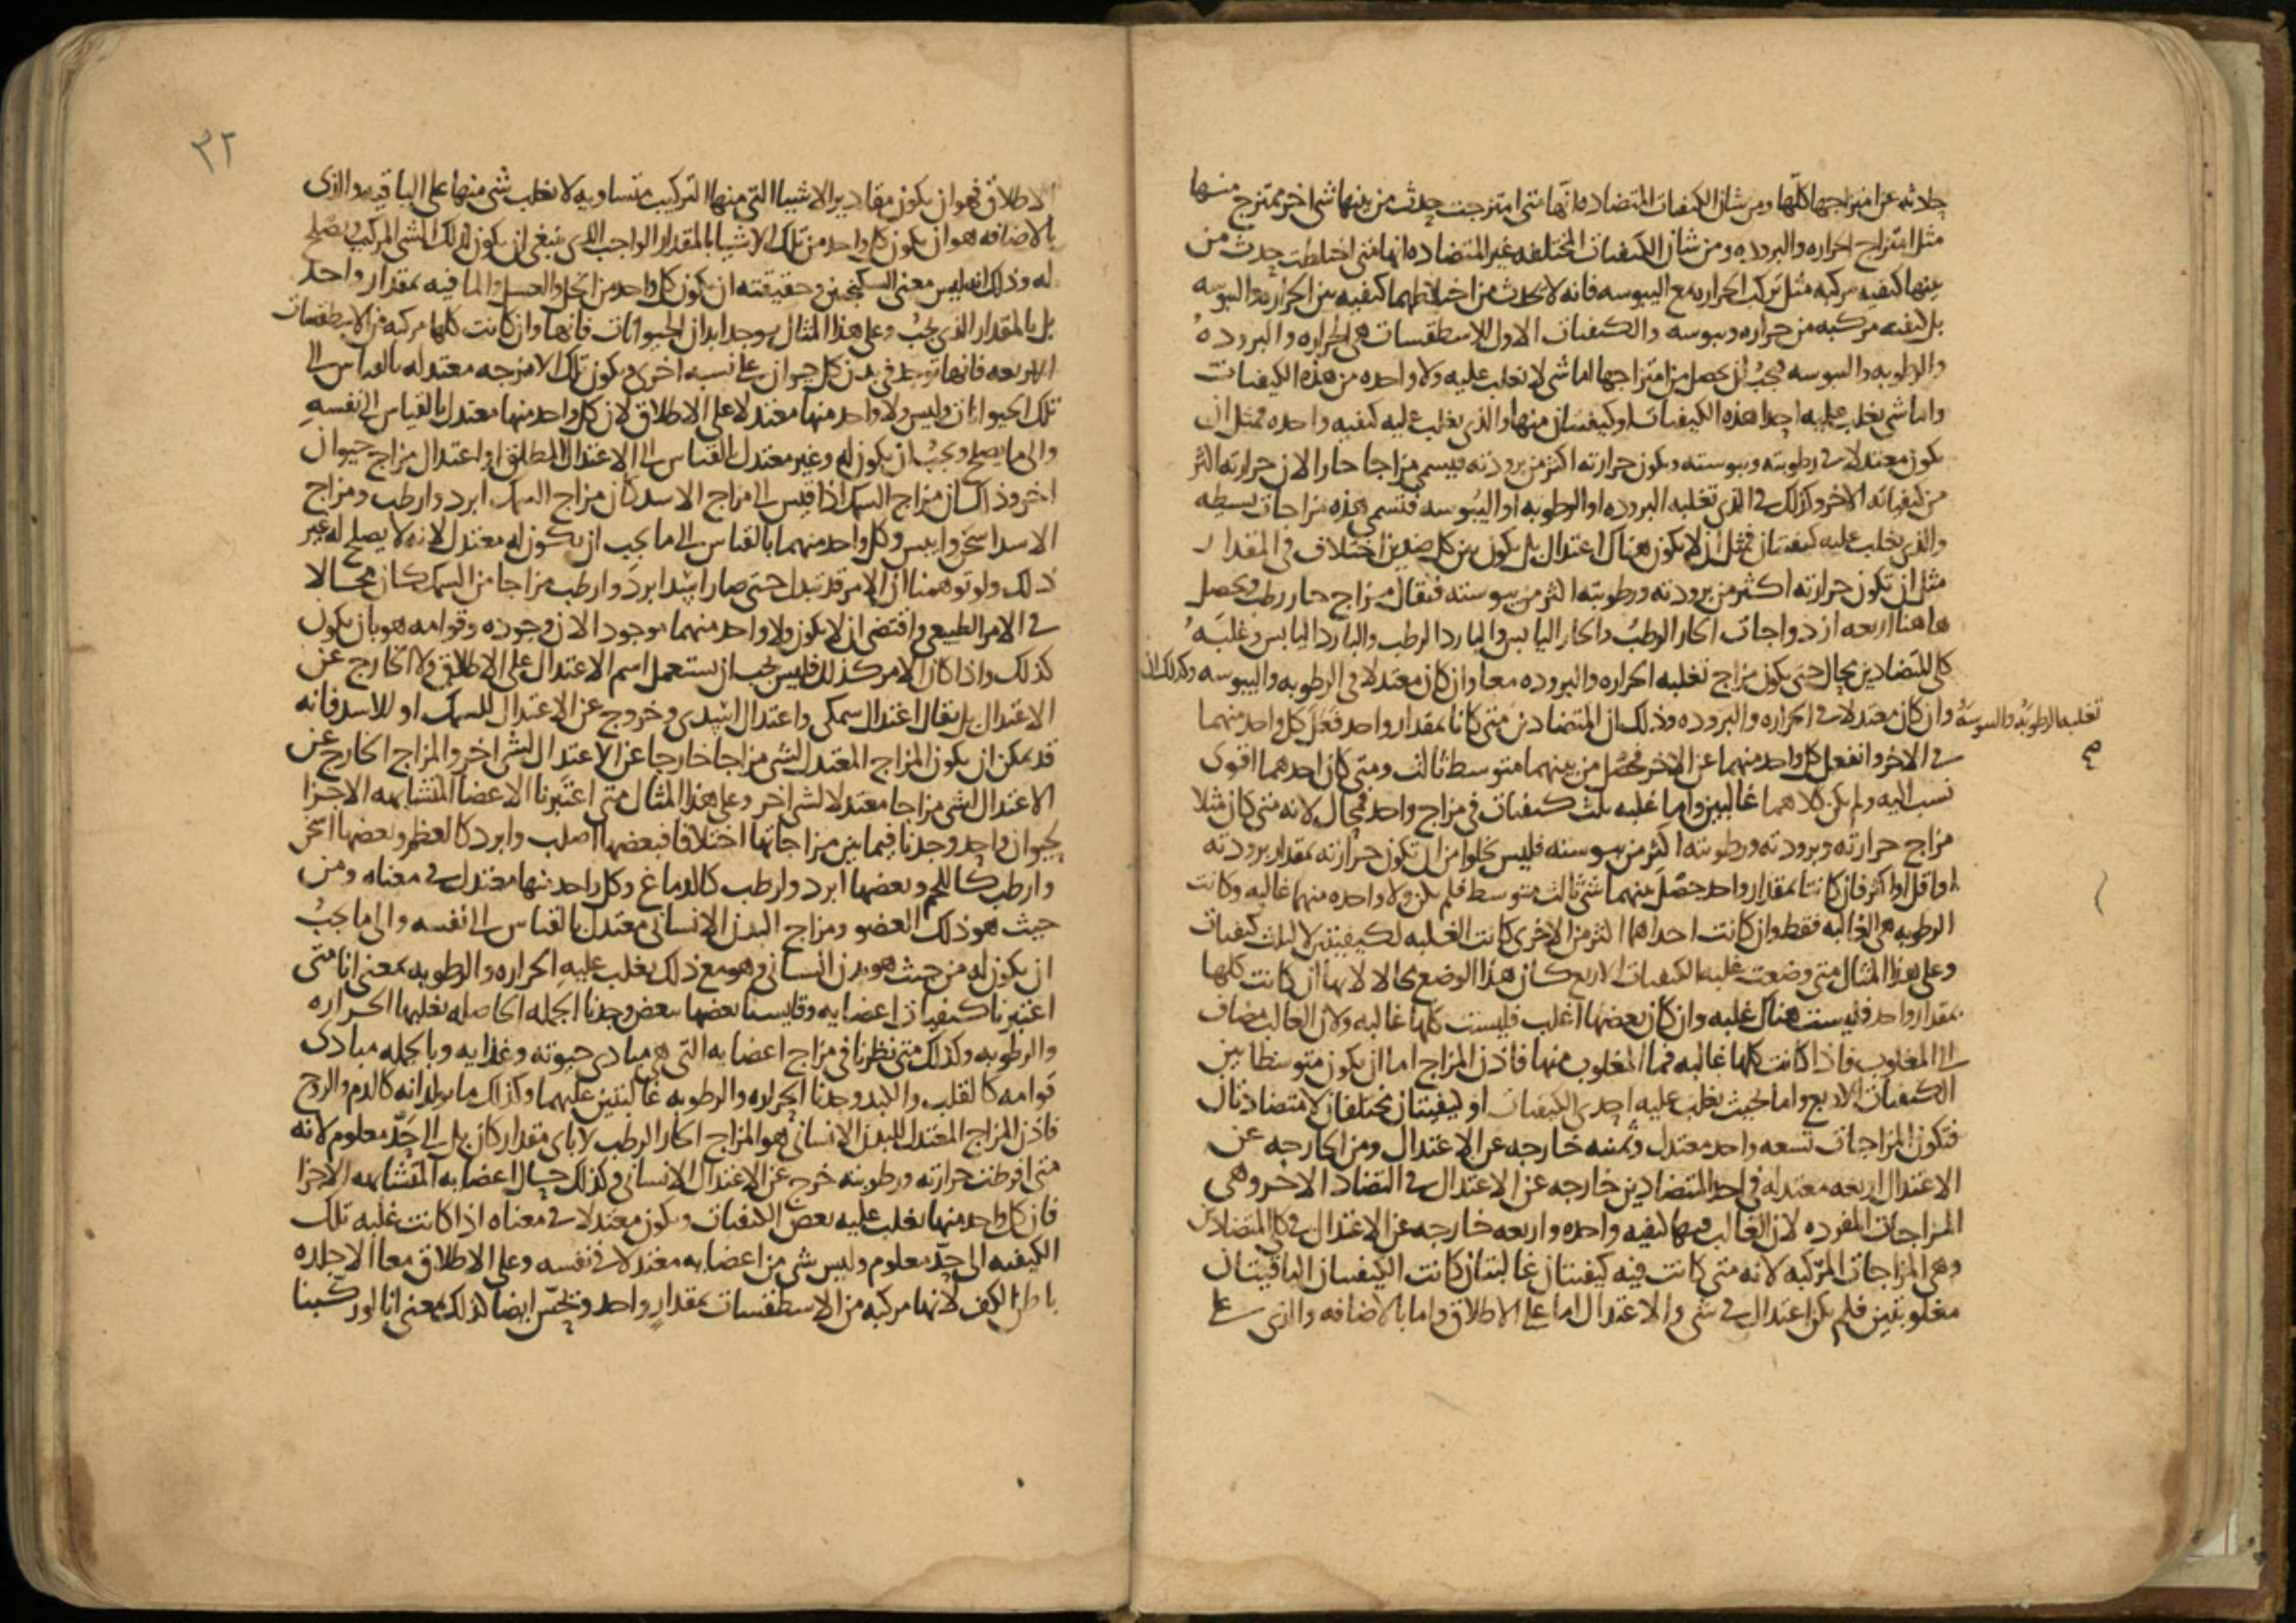 حادثه عن امتزاجها كلها ومن شان الكيفيات المتضاده انها متى امتزجت حدث من بينها شى اخر ممتزج منها
مثل امتزاج الحراره والبروده ومن شان الكيفيات المختلفه غير المتضاده انها متى اختلطت حدث من
بينها كيفيه مركبه مثل تركب الحراره مع اليبوسه فانه لا يحدث من اختلاطهما كيفيه بين الحراره واليبوسه
بل كيفيه مركبه من حراره ويبوسه والكيفيات الاول للاسطقسات هى الحراره والبروده
والرطوبه واليبوسه فيجب ان يحصل من امتزاجها اما شى لا تغلب عليه ولا واحده من هذه الكيفيات
واما شى يغلب عليه احدا هذه الكيفيات او كيفيتان منها والذى يغلب عليه كيفيه واحده فمثل ان
يكون معتدلا فى رطوبته ويبوسته ويكون حرارته اكثر من برودته فيسمى مزاجا حارا لان حرارته اكثر
من كيفياته الاخر وكذلك فى الذى تغلبه البروده او الرطوبه او اليبوسه فتسمى هذه مزاجات بسيطه
والذى يغلب عليه كيفيتان فمثل ان لا يكون هناك اعتدال بل يكون بين كل ضدين اختلاف فى المقدار
مثل ان تكون حرارته اكثر من برودته ورطوبته اكثر من يبوسته فيقال مزاج حار رطب ويحصل
هاهنا اربعه ازدواجات الحار الرطب والحار اليابس والبارد الرطب والبارد اليابس وغلبه
كلى المتضادين محال حتى يكون مزاج تغلبه الحراره والبروده معا وان كان معتدلا فى الرطوبه واليبوسه وكذلك ان
تغلبه الرطوبه واليبوسه
وان كان معتدلا فى الحراره والبروده وذلك ان المتضادين متى كانا بمقدار واحد فعل كل واحد منهما
فى الاخر وانفعل كل واحد منهما عن الاخر فحصل من بينهما متوسط ثالث ومتى كان احدهما اقوى
نسب اليه ولم يكن كلاهما غالبين واما غلبه ثلث كيفيات فى مزاج واحد فمحال لانه متى كان مثلا
مزاج حرارته وبرودته ورطوبته اكثر من يبوسته فليس يخلوا من ان تكون حرارته بمقدار برودته
او اقل او اكثر فان كانتا بمقدار واحد حصل بينهما شى ثالث متوسط فلم يكن ولا واحده منهما غالبه وكانت
الرطوبه هى الغالبه فقط وان كانت احداهما اكثر من الاخرى كانت الغلبه لكيفيتين لا لثلث كيفيات
وعلى هذا المثال متى وضعت غلبه الكيفيات الاربع كان هذا الوضع محالا لانها ان كانت كلها
بمقدار واحد فليست هناك غلبه وان كان بعضها اغلب فليست كلها غالبه ولان الغالب مضاف
الى المغلوب فاذا كانت كلها غالبه فما المغلوب منها فاذن المزاج اما ان يكون متوسطا بين
الكيفيات الاربع واما بحيث يغلب عليه احدى الكيفيات او كيفيتان مختلفتان لا متضادتان
فتكون المزاجات تسعه واحد معتدل وثمنيه خارجه عن الاعتدال ومن الخارجه عن
الاعتدال اربعه معتدله فى احد المتضادين خارجه عن الاعتدال فى التضاد الاخر وهى
المزاجات المفرده لان الغالب فيها كيفيه واحده واربعه خارجه عن الاعتدال فى كلى المتضادين
وهى المزاجات المركبه لانه متى كانت فيه كيفيتان غالبتان كانت الكيفيتان الباقيتان
مغلوبتين فلم يكن اعتدال فى شى والاعتدال اما على الاطلاق واما بالاضافه والذى على
٣٢
الاطلاق فهو ان يكون مقادير الاشيا التى منها التركيب متساويه لا يغلب شى منها على الباقيه والذى
بالاضافه هو ان يكون كل واحد من تلك الاشيا بالمقدار الواجب الذى ينبغى ان يكون لذلك الشى المركب ويصلح
له وذلك انه ليس معنى السكنجبين وحقيقته ان يكون كل واحد من الخل والعسل والما فيه بمقدار واحد
بل بالمقدار الذى يجب وعلى هذا المثال يوجد ابدان الحيوانات فانها وان كانت كلها مركبه من الاسطقسات
الاربعه فانها توجد فى بدن كل حيوان على نسبه اخرى ويكون تلك الامزجه معتدله بالقياس الى
تلك الحيوانات وليس ولا واحد منها معتدلا على الاطلاق لان كل واحد منها معتدل بالقياس الى نفسه
والى ما يصلح ويجب ان يكون له وغير معتدل بالقياس الى الاعتدال المطلق او اعتدال مزاج حيوان
اخر وذاك ان مزاج السمك اذا قيس الى مزاج الاسد كان مزاج السمك ابرد وارطب ومزاج
الاسد اسخن وايبس وكل واحد منهما بالقياس الى ما يجب ان يكون له معتدل لانه لا يصلح له غير
ذلك ولو توهمنا ان الامر قد تبدل حتى صار اسدا ابرد وارطب مزاجا من السمك كان محالا
فى الامر الطبيعى واقتضى ان لا يكون ولا واحد منهما موجود الان وجوده وقوامه هو بان يكون
كذلك واذا كان الامر كذلك فليس يجب ان يستعمل اسم الاعتدال على الاطلاق ولا الخارج عن
الاعتدال بل يقال اعتدال سمكى واعتدال اسدى وخروج عن الاعتدال للسمك او للاسد فانه
قد يمكن ان يكون المزاج المعتدل لشى مزاجا خارجا عن الاعتدال لشى اخر والمزاج الخارج عن
الاعتدال لشى مزاجا معتدلا لشى اخر وعلى هذا المثال متى اعتبرنا الاعضا المتشابهه الاجزا
لحيوان واحد وجدنا فيما بين مزاجاتها اختلافا فبعضها اصلب وابرد كالعظم وبعضها اسخن
وارطب كاللحم وبعضها ابرد وارطب كالدماغ وكل واحد منها معتدل فى معناه ومن
حيث هو ذلك العضو ومزاج البدن الانسانى معتدل بالقياس الى نفسه والى ما يجب
ان يكون له من حيث هو بدن انسانى وهو مع ذلك يغلب عليه الحراره والرطوبه بمعنى انا متى
اعتبرنا كيفيات اعضايه وقايسنا بعضها ببعض وجدنا الجمله الحاصله يغلبها الحراره
والرطوبه وكذلك متى نظرنا فى مزاج اعضايه التى هى مبادى حيوته وغذايه وبالجمله مبادى
قوامه كالقلب والكبد وجدنا الحراره والرطوبه غالبتين عليهما وكذلك ما يولدانه كالدم والروح
فاذن المزاج المعتدل للبدن الانسانى هو المزاج الحار الرطب لا باى مقدار كان بل الى حد معلوم لانه
متى افرطت حرارته ورطوبته خرج عن الاعتدال الانسانى وكذلك حال اعضايه المتشابهه الاجزا
فان كل واحد منها يغلب عليه بعض الكيفيات ويكون معتدلا فى معناه اذا كانت غلبه تلك
الكيفيه الى حد معلوم وليس شى من اعضايه معتدلا فى نفسه وعلى الاطلاق معا الا جلده
باطن الكف لانها مركبه من الاسطقسات بمقدار واحد وتحس ايضا كذلك بمعنى انا لو ركبنا